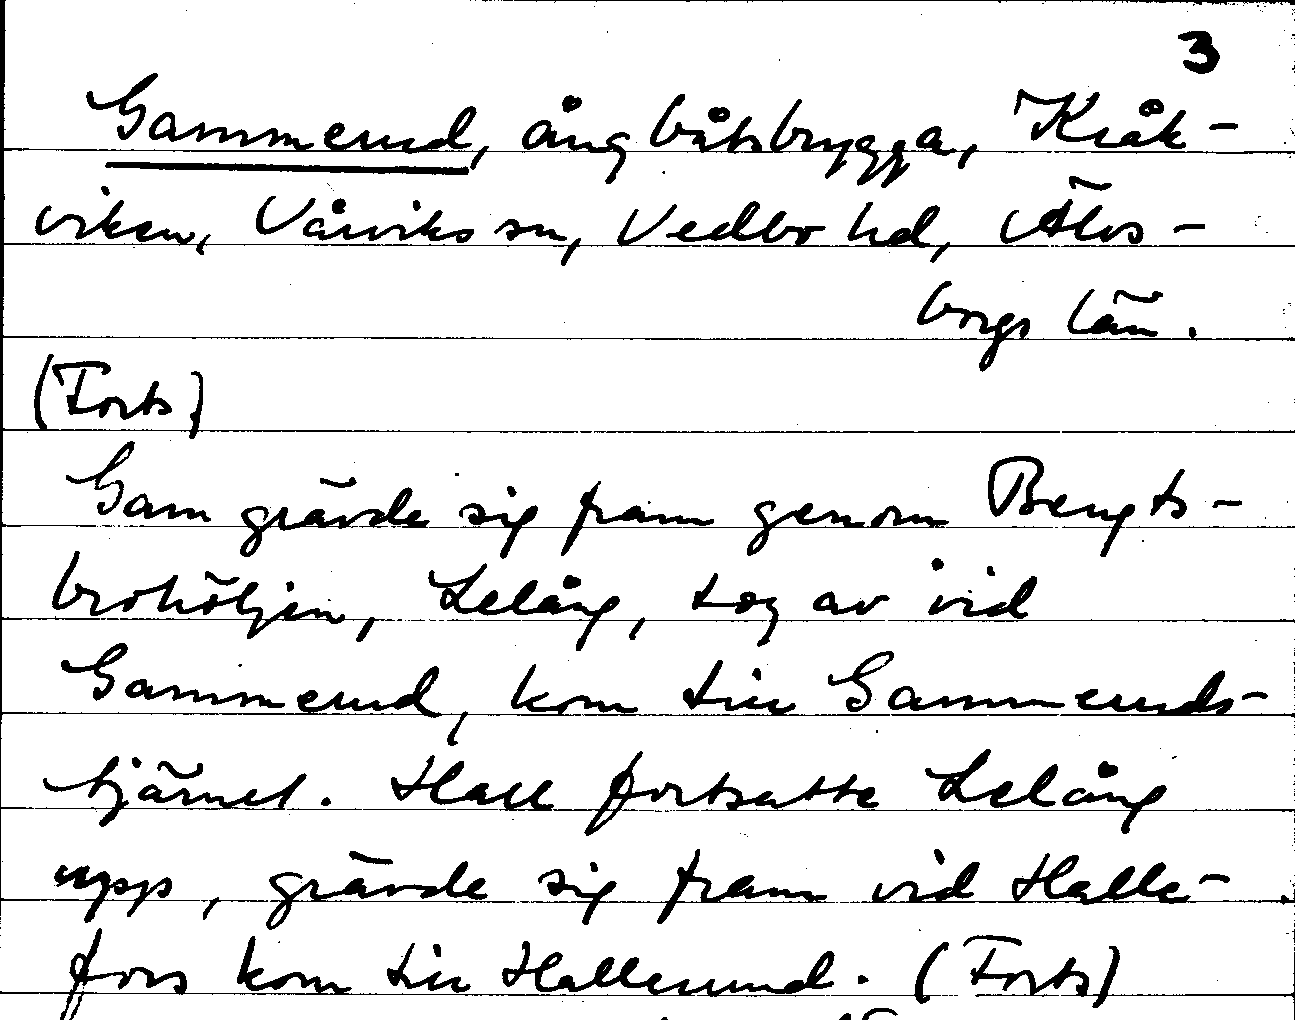 3
Gammerud, ångbåtsbrygga, Kråk-
viken, Vårviks sn, Vedbo hd, Älvs-
borgs län.
(Forts)
Gam grävde sig fram genom Bengts-
brohöljen, Lelång, tog av vid
Gammerud, kom till Gammeruds-
tjärnet. Hall fortsatte Lelång
upp, grävde sig fram vid Halle-
fors kom till Hallesund. (Forts)